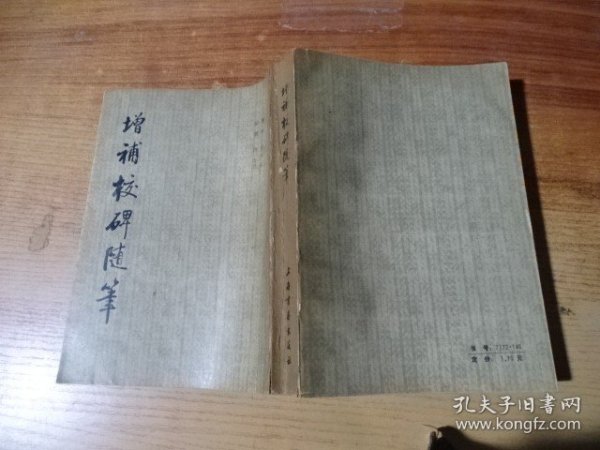 增補校碑隨筆
增補校碑隨筆
上海書畫出版社
书号：7172·1
定价：1.70元
孔夫子旧书网
www.kongfz.com